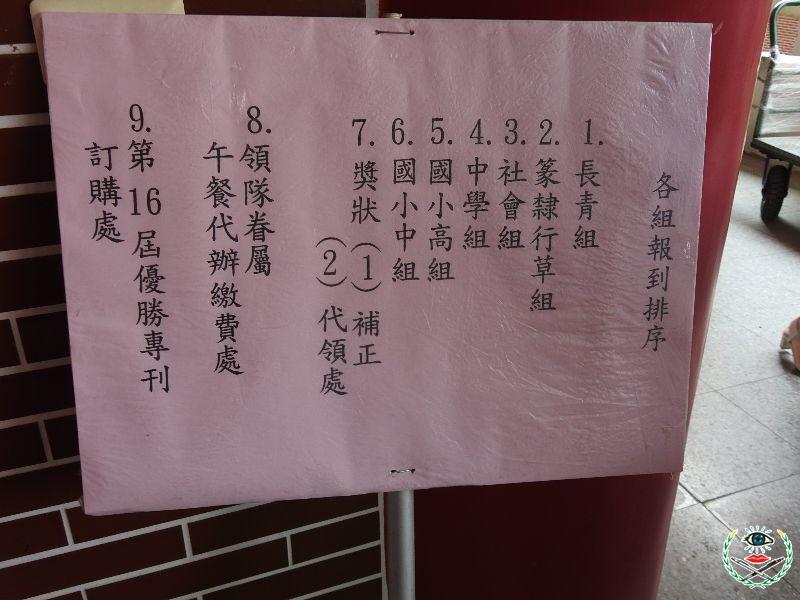 各組報到排序
1.長青組
2.篆隸行草組
3.社會組
4.中學組
5.國小高組
6.國小中組
7.獎狀(1)補正
(2)代領處
8.領隊眷屬
午餐代辦繳費處
9.第16屆優勝專刊
訂購處